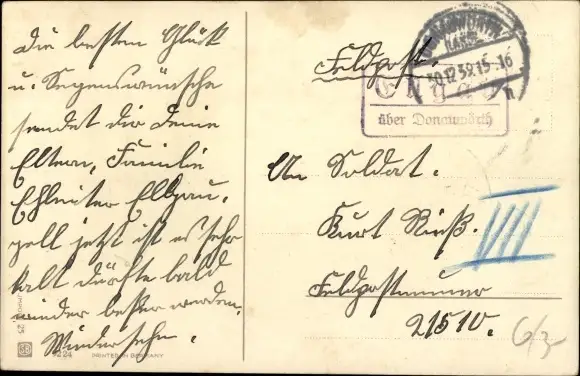 Die besten Glück
u. Segenswünsche
sendet dir deine
Eltern, Familie
Ellgau.
jetzt ist es sehr
kalt dürfte bald
wieder besser werden.
Wiedersehn.
Feldpost.
DONAUWÖRTH
30.12.39.15-16
Ellgau
über Donauwörth
An Soldat.
Kurt
Feldpostnummer
21510.
6/3
224 PRINTED IN GERMANY